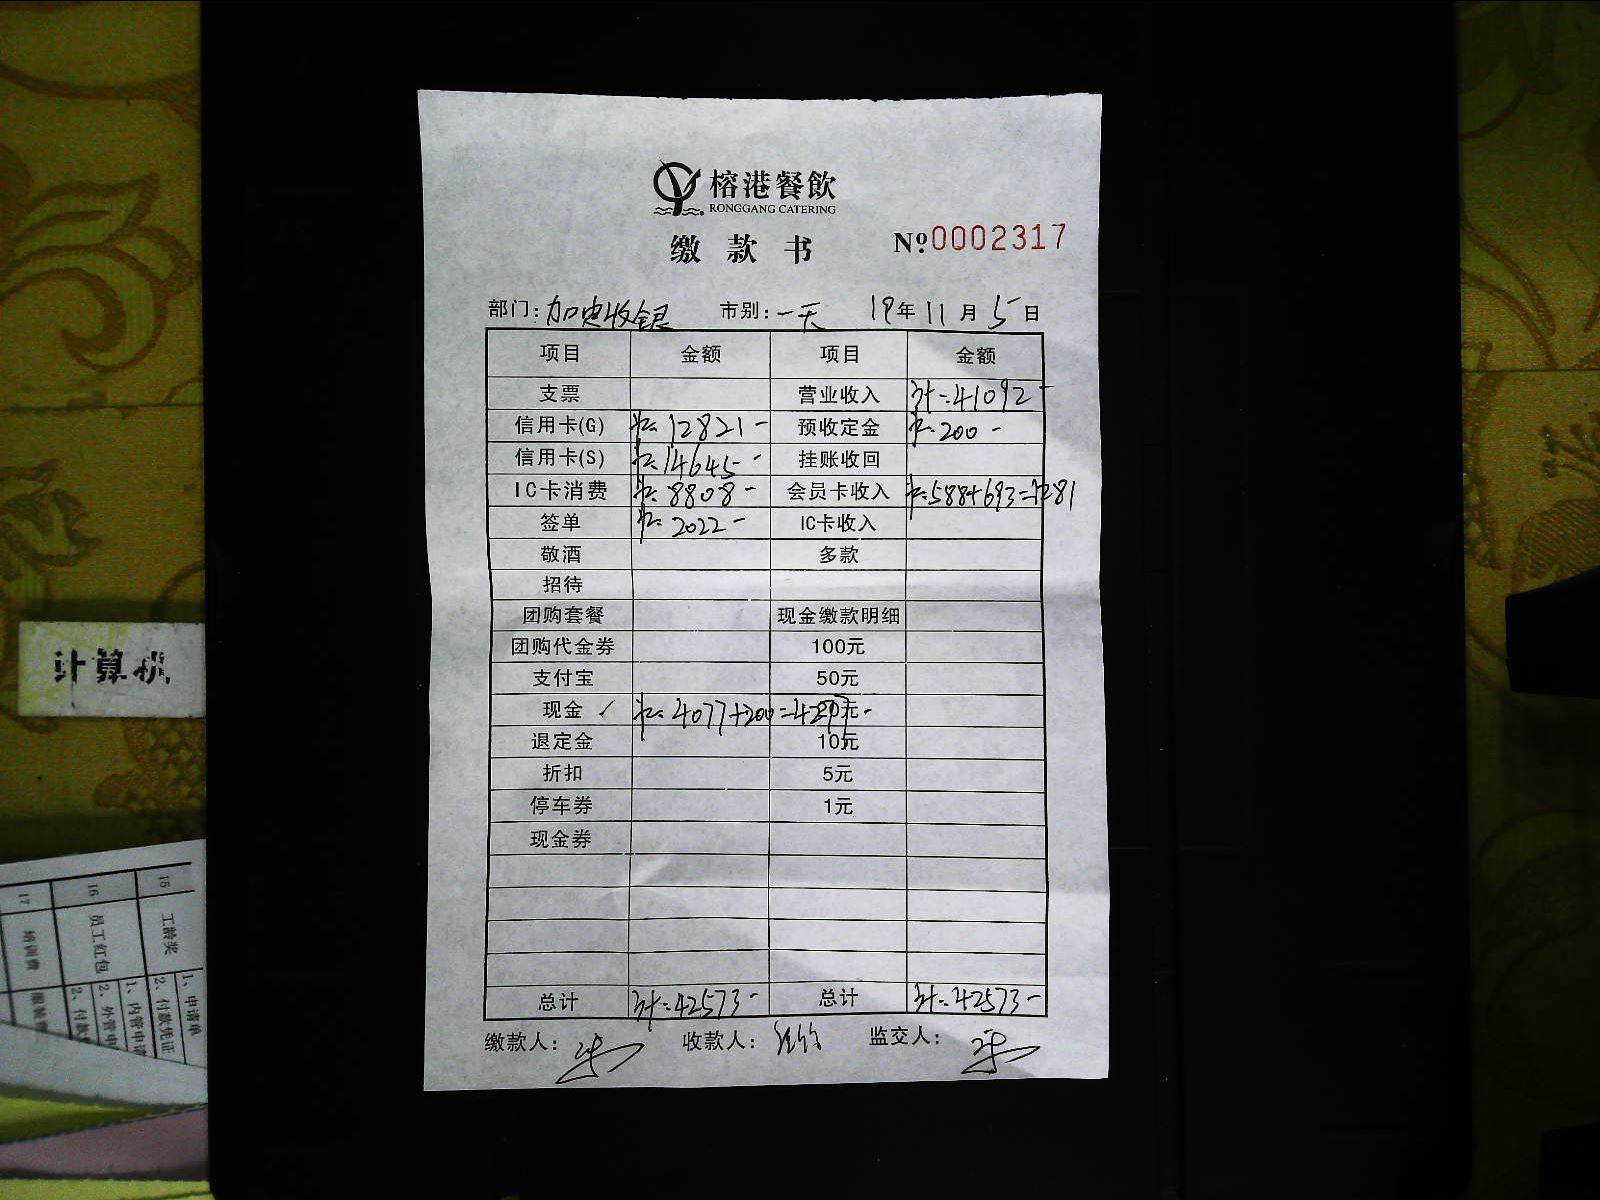 榕港餐飲
RONGGANG CATERING
缴款书 Nº0002317
部门:加忠收银 市别:一天 19年11月5日
项目 金额 项目 金额
支票 营业收入 计:41092-
信用卡(G) 12821- 预收定金 200-
信用卡(S) 14645- 挂账收回
IC卡消费 8808- 会员卡收入 588+693=1281
签单 2022- IC卡收入
敬酒 多款
招待
团购套餐 现金缴款明细
团购代金券 100元
支付宝 50元
现金 ✓ 4077+200=4277- 20元
退定金 10元
折扣 5元
停车券 1元
现金券
总计 计:42573- 总计 计:42573-
缴款人: 收款人: 监交人:
计算机
15 工龄奖 1、申请单
2、付款凭证
16 员工红包 1、内管申请
17 培训费